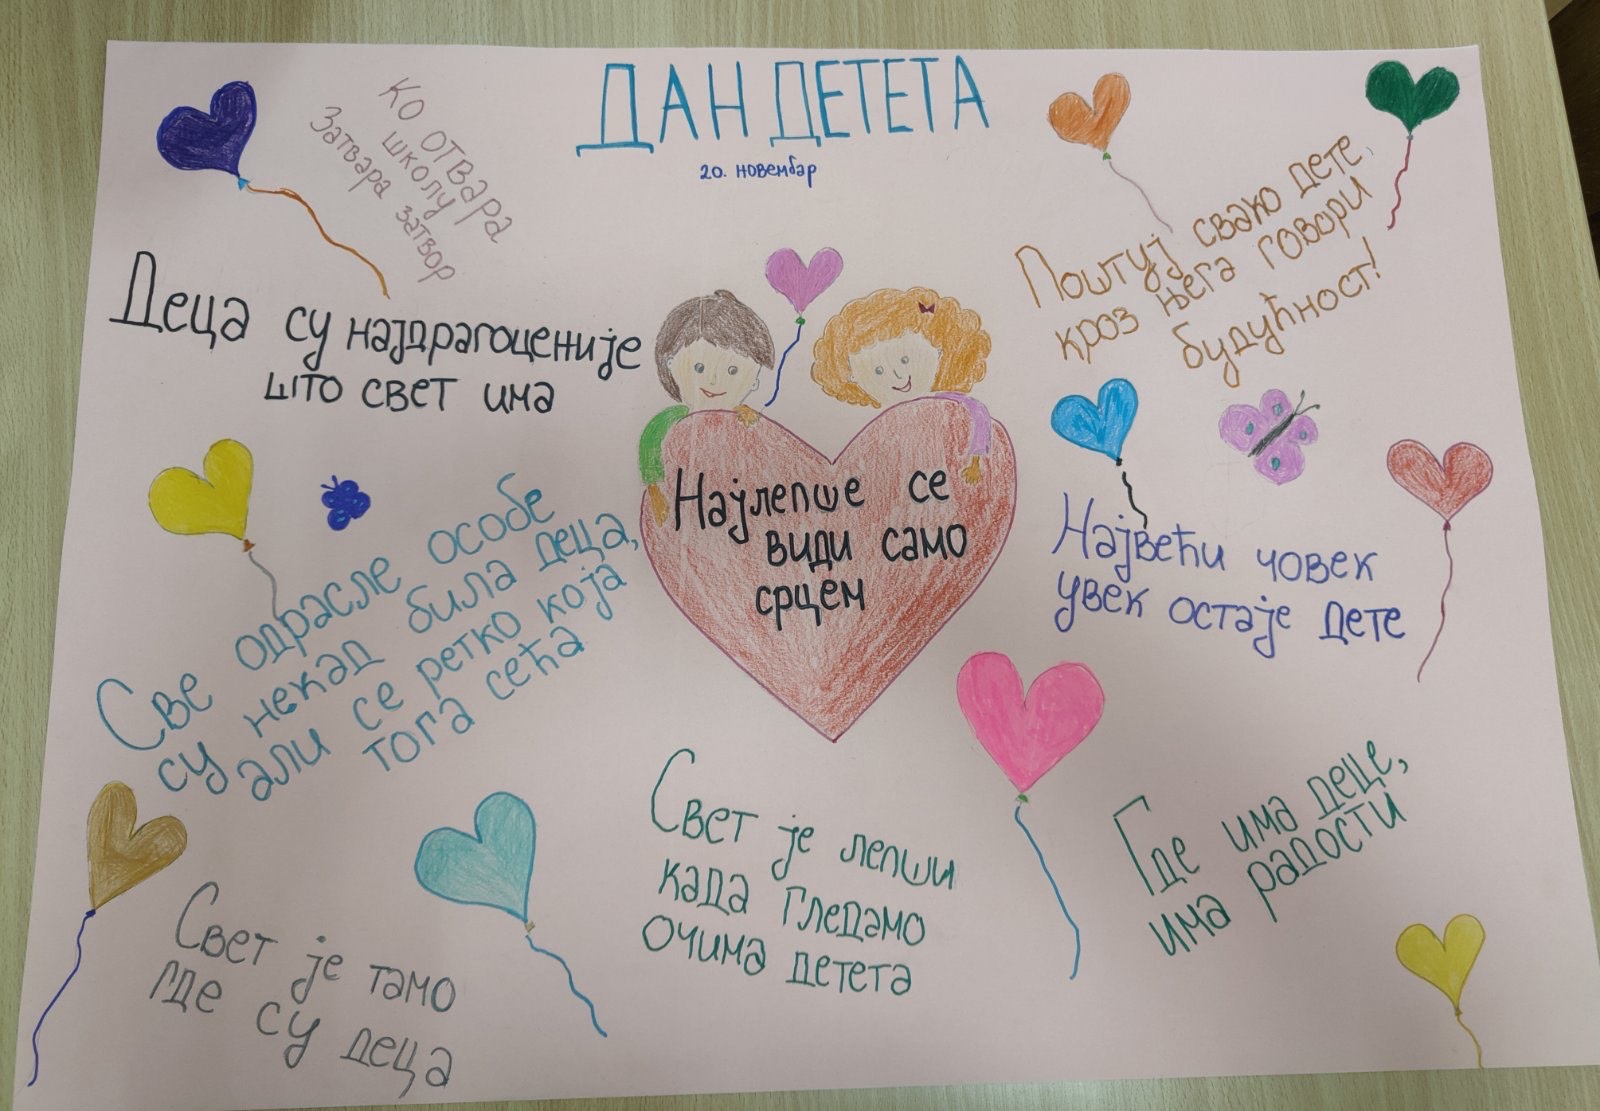 ДАН ДЕТЕТА
20. новембар
Ко отвара
школу
затвара затвор
Поштуј свако дете,
кроз њега говори
будућност!
Деца су најдрагоценије
што свет има
Најлепше се
види само
срцем
Највећи човек
увек остаје дете
Све одрасле особе
су некад била деца,
али се ретко која
тога сећа
Свет је лепши
када гледамо
очима детета
Где има деце,
има радости
Свет је тамо
где су деца